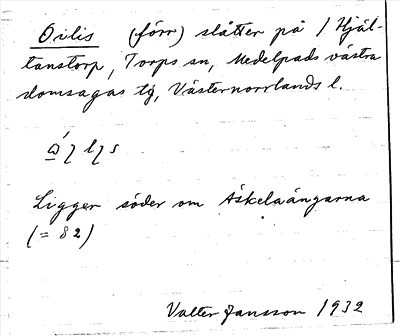 Oilis (förr) slåtter på 1 Hjäl-
tanstorp, Torps sn, Medelpads västra
domsagas tg, Västernorrlands l.
Ligger söder om Äskelaängarna
(= 82)
Valter Jansson 1932